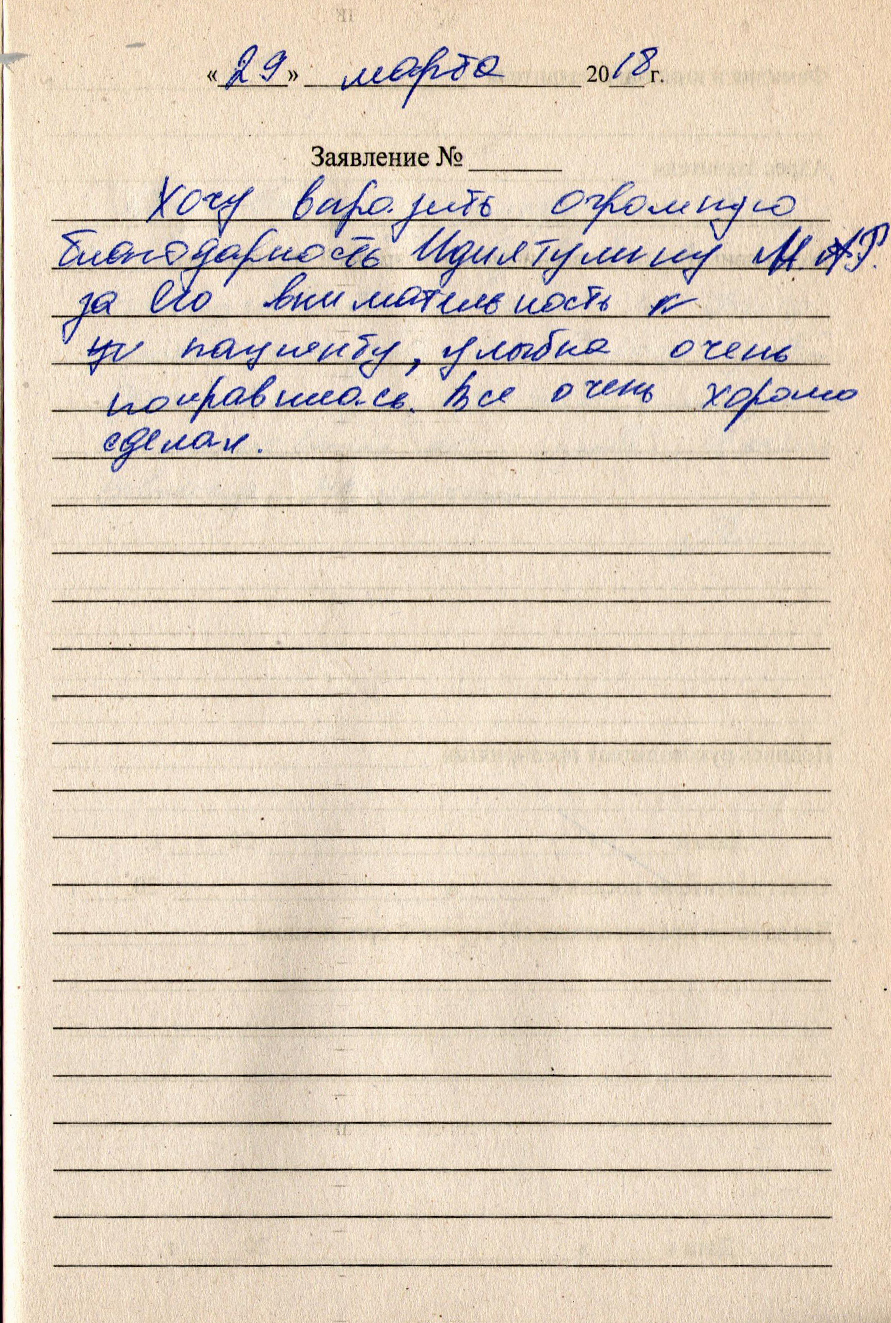 « 29 » марта 2018 г.
Заявление №
Хочу выразить огромную
благодарность Идиятулину
за его внимательность к
пациенту, улыбка очень
понравилась. Все очень хорошо
сделал.